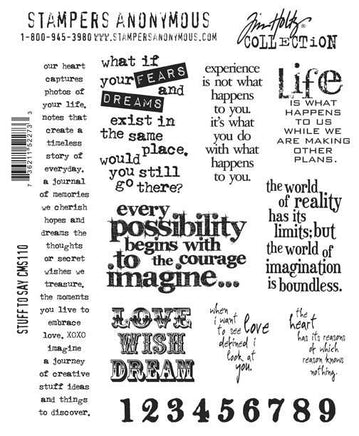 STAMPERS ANONYMOUS
1-800-945-3980 WWW.STAMPERSANONYMOUS.COM
Tim Holtz
COLLECTION
our heart
captures
photos of
your life.
notes that
create a
timeless
story of
everyday.
a journal
of memories
we cherish
hopes and
dreams the
thoughts
or secret
wishes we
treasure.
the moments
you live to
embrace
love. XOXO
imagine
a journey
of creative
stuff ideas
and things
to discover.
STUFF TO SAY CMS110
what if
your FEARS
and
DREAMS
exist in
the same
place.
would
you still
go there?
experience
is not what
happens
to you.
it's what
you do
with what
happens
to you.
Life
IS WHAT
HAPPENS
TO US
WHILE WE
ARE MAKING
OTHER
PLANS.
every
possibility
begins with
to the courage
imagine...
the world
of reality
has its
limits; but
the world of
imagination
is boundless.
LOVE
WISH
DREAM
when
i want
to see love
defined i
look at
you.
the
heart
has its reasons
of which
reason knows
nothing.
123456789